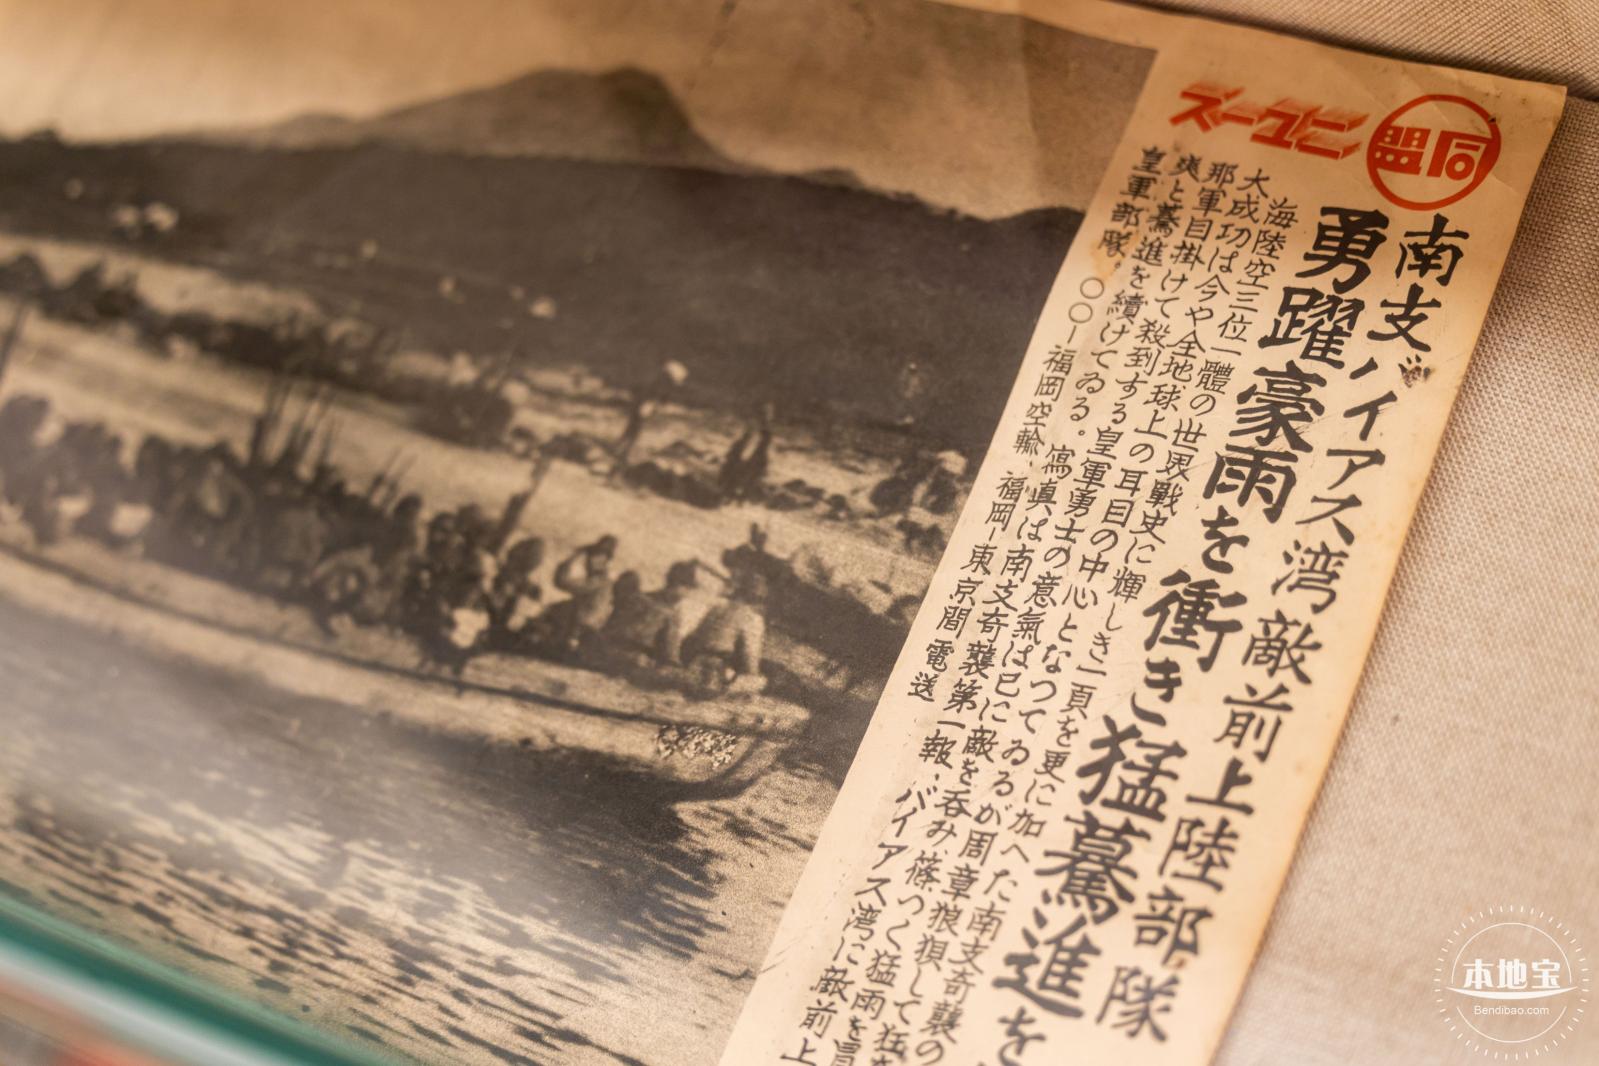 同盟ニュース
南支バイアス湾敵前上陸部隊
勇躍豪雨を衝き猛驀進を
海陸空三位一體の世界戰史に輝しき一頁を更に加へた南支奇襲の
大成功は今や全地球上の耳目の中心となつてゐるが周章狼狽して狂
那軍目掛けて殺到する皇軍勇士の意氣は已に敵を呑み、篠つく猛雨を冒
爽と驀進を續けてゐる。寫眞は南支奇襲第一報、バイアス湾に敵前上
皇軍部隊。〇〇―福岡空輸、福岡―東京間電送
本地宝
Bendibao.com